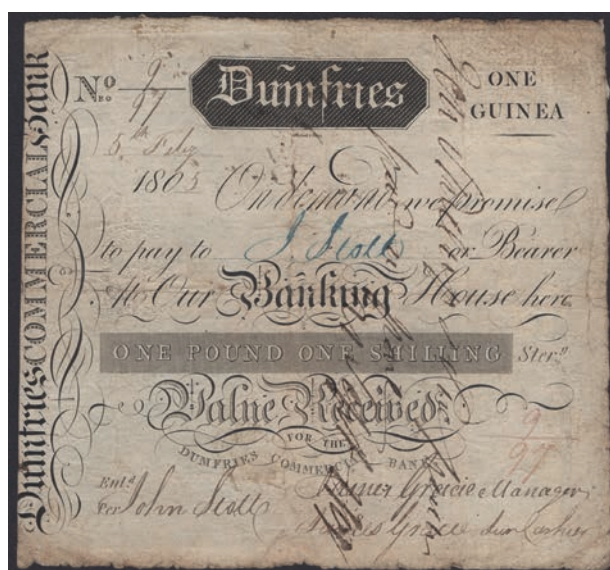 Dumfries COMMERCIAL Bank
No 9/97
Dumfries
ONE
GUINEA
5th Feby
1805 On demand we promise
to pay to J Scott or Bearer
At Our Banking House here
ONE POUND ONE SHILLING Sterg
Value Received
FOR THE
DUMFRIES COMMERCIAL BANK
9/97
Entd James Gracie Manager
Per John Scott James Gracie Junr Cashier